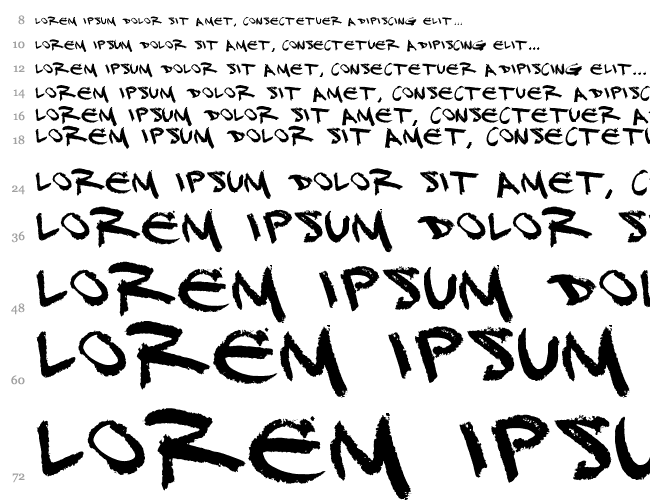 8 LOREM IPSUM DOLOR SIT AMET, CONSECTETUER ADIPISCING ELIT...
10 LOREM IPSUM DOLOR SIT AMET, CONSECTETUER ADIPISCING ELIT...
12 LOREM IPSUM DOLOR SIT AMET, CONSECTETUER ADIPISCING ELIT...
14 LOREM IPSUM DOLOR SIT AMET, CONSECTETUER ADIPISC
16 LOREM IPSUM DOLOR SIT AMET, CONSECTETUER A
18 LOREM IPSUM DOLOR SIT AMET, CONSECTETU
24 LOREM IPSUM DOLOR SIT AMET, C
36 LOREM IPSUM DOLOR S
48 LOREM IPSUM DOL
60 LOREM IPSUM
72 LOREM IPSU